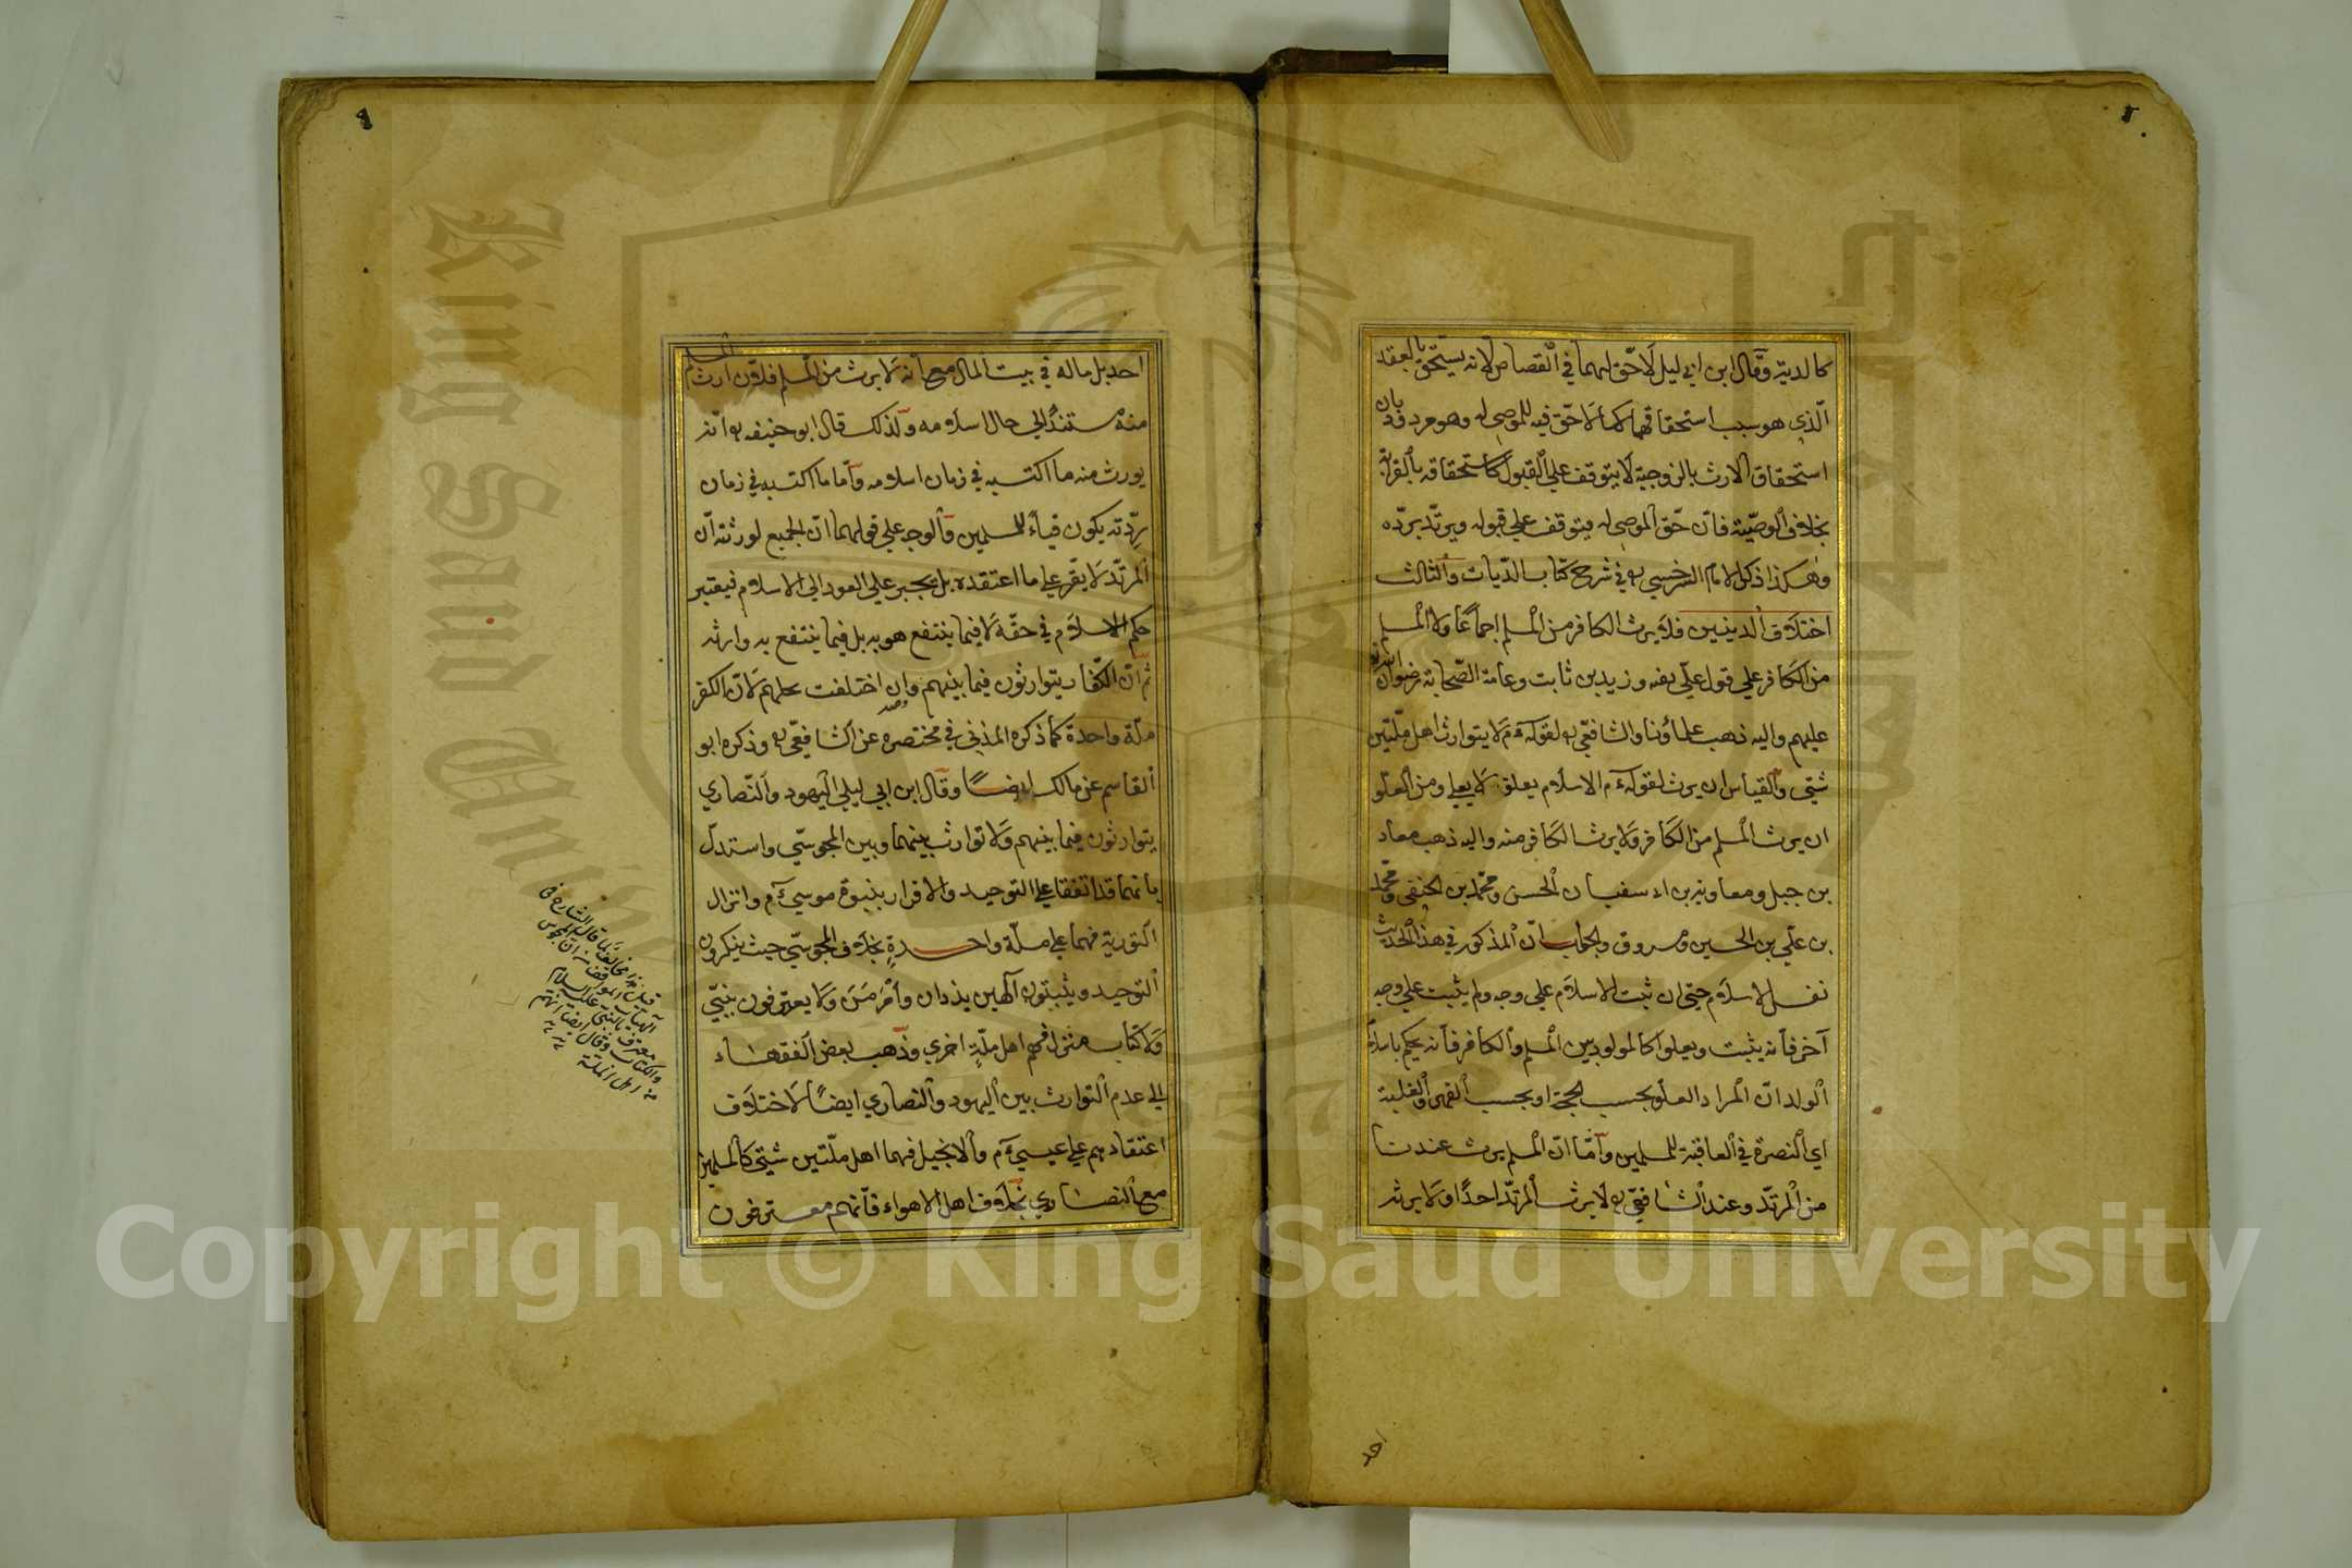 كالدية وقال ابن ابي ليل لا حق لهما في القصاص لانه يستحق بالعقد
الذي هو سبب استحقاقهما كما لا حق فيه للموصى له وهو مردود بان
استحقاق الارث بالزوجية لا يتوقف على القبول كاستحقاقه بالقرابة
بخلاف الوصية فان حق الموصى له يتوقف على قبوله ويرتد برده
وهكذا ذكر الامام السرخسي في شرح كتاب الديات والثالث
اختلاف الدينين فلا يرث الكافر من المسلم اجماعا ولا المسلم
من الكافر على قول علي وزيد بن ثابت وعامة الصحابة رضوان الله
عليهم واليه ذهب علماؤنا والشافعي لقوله عم لا يتوارث اهل ملتين
شتى والقياس ان يرث لقوله عم الاسلام يعلو لا يعلى ومن العلو
ان يرث المسلم من الكافر ولا يرث الكافر منه واليه ذهب معاد
بن جبل ومعاوية بن ابي سفيان الحسن ومحمد بن الحنفي ومحمد
بن علي بن الحسين ومسروق والجواب ان المذكور في هذا الحديث
نفس الاسلام حتى ان ثبت الاسلام على وجه ولم يثبت على وجه
آخر فانه يثبت ويعلوا كالمولود بين المسلم والكافر فانه يحكم باسلام
الولد ان المراد العلو بحسب الحجة او بحسب القهر والغلبة
اي النصرة في العاقبة للمسلمين واما ان المسلم يرث عندنا
من المرتد وعند الشافعي لا يرث المرتد احدا ولا يرثه
احد
٩
احد بل ماله في بيت المال مع انه لا يرث من المسلم فلان ارث المسلم
منه مستند الى حال اسلامه ولذلك قال ابو حنيفه انه
يورث منه ما اكتسبه في زمان اسلامه واما ما اكتسبه في زمان
ردته يكون فياء للمسلمين والوجه على قولهما ان الجميع لورثته ان
المرتد لا يقر على ما اعتقده بل يجبر على العود الى الاسلام فيعتبر
حكم الاسلام في حقه لا فيما ينتفع هو به بل فيما ينتفع به وارثه
ثم ان الكفار يتوارثون فيما بينهم وان اختلفت مللهم لان الكفر
ملة واحدة كما ذكره المذني في مختصره عن الشافعي وذكره ابو
القاسم عن مالك ايضا وقال ابن ابي ليلى اليهود والنصاري
يتوارثون فيما بينهم ولا توارث بينهما وبين المجوسي واستدل
بانهما قد اتفقا على التوحيد والاقرار بنبوة موسى عم وانزال
التورية فهما على ملة واحدة بخلاف المجوسي حيث ينكرون
التوحيد ويثبتون آلهين يذدان واهرمن ولا يعترفون بنبي
ولا كتاب منزل فهم اهل ملة اخرى وذهب بعض الفقهاء
الى عدم التوارث بين اليهود والنصاري ايضا لاختلاف
اعتقادهم على عيسى عم والانجيل فهما اهل ملتين شتى كالمسلمين
مع النصاري بخلاف اهل الاهواء فانهم معترفون
والكتاب وقال ايضا انهم